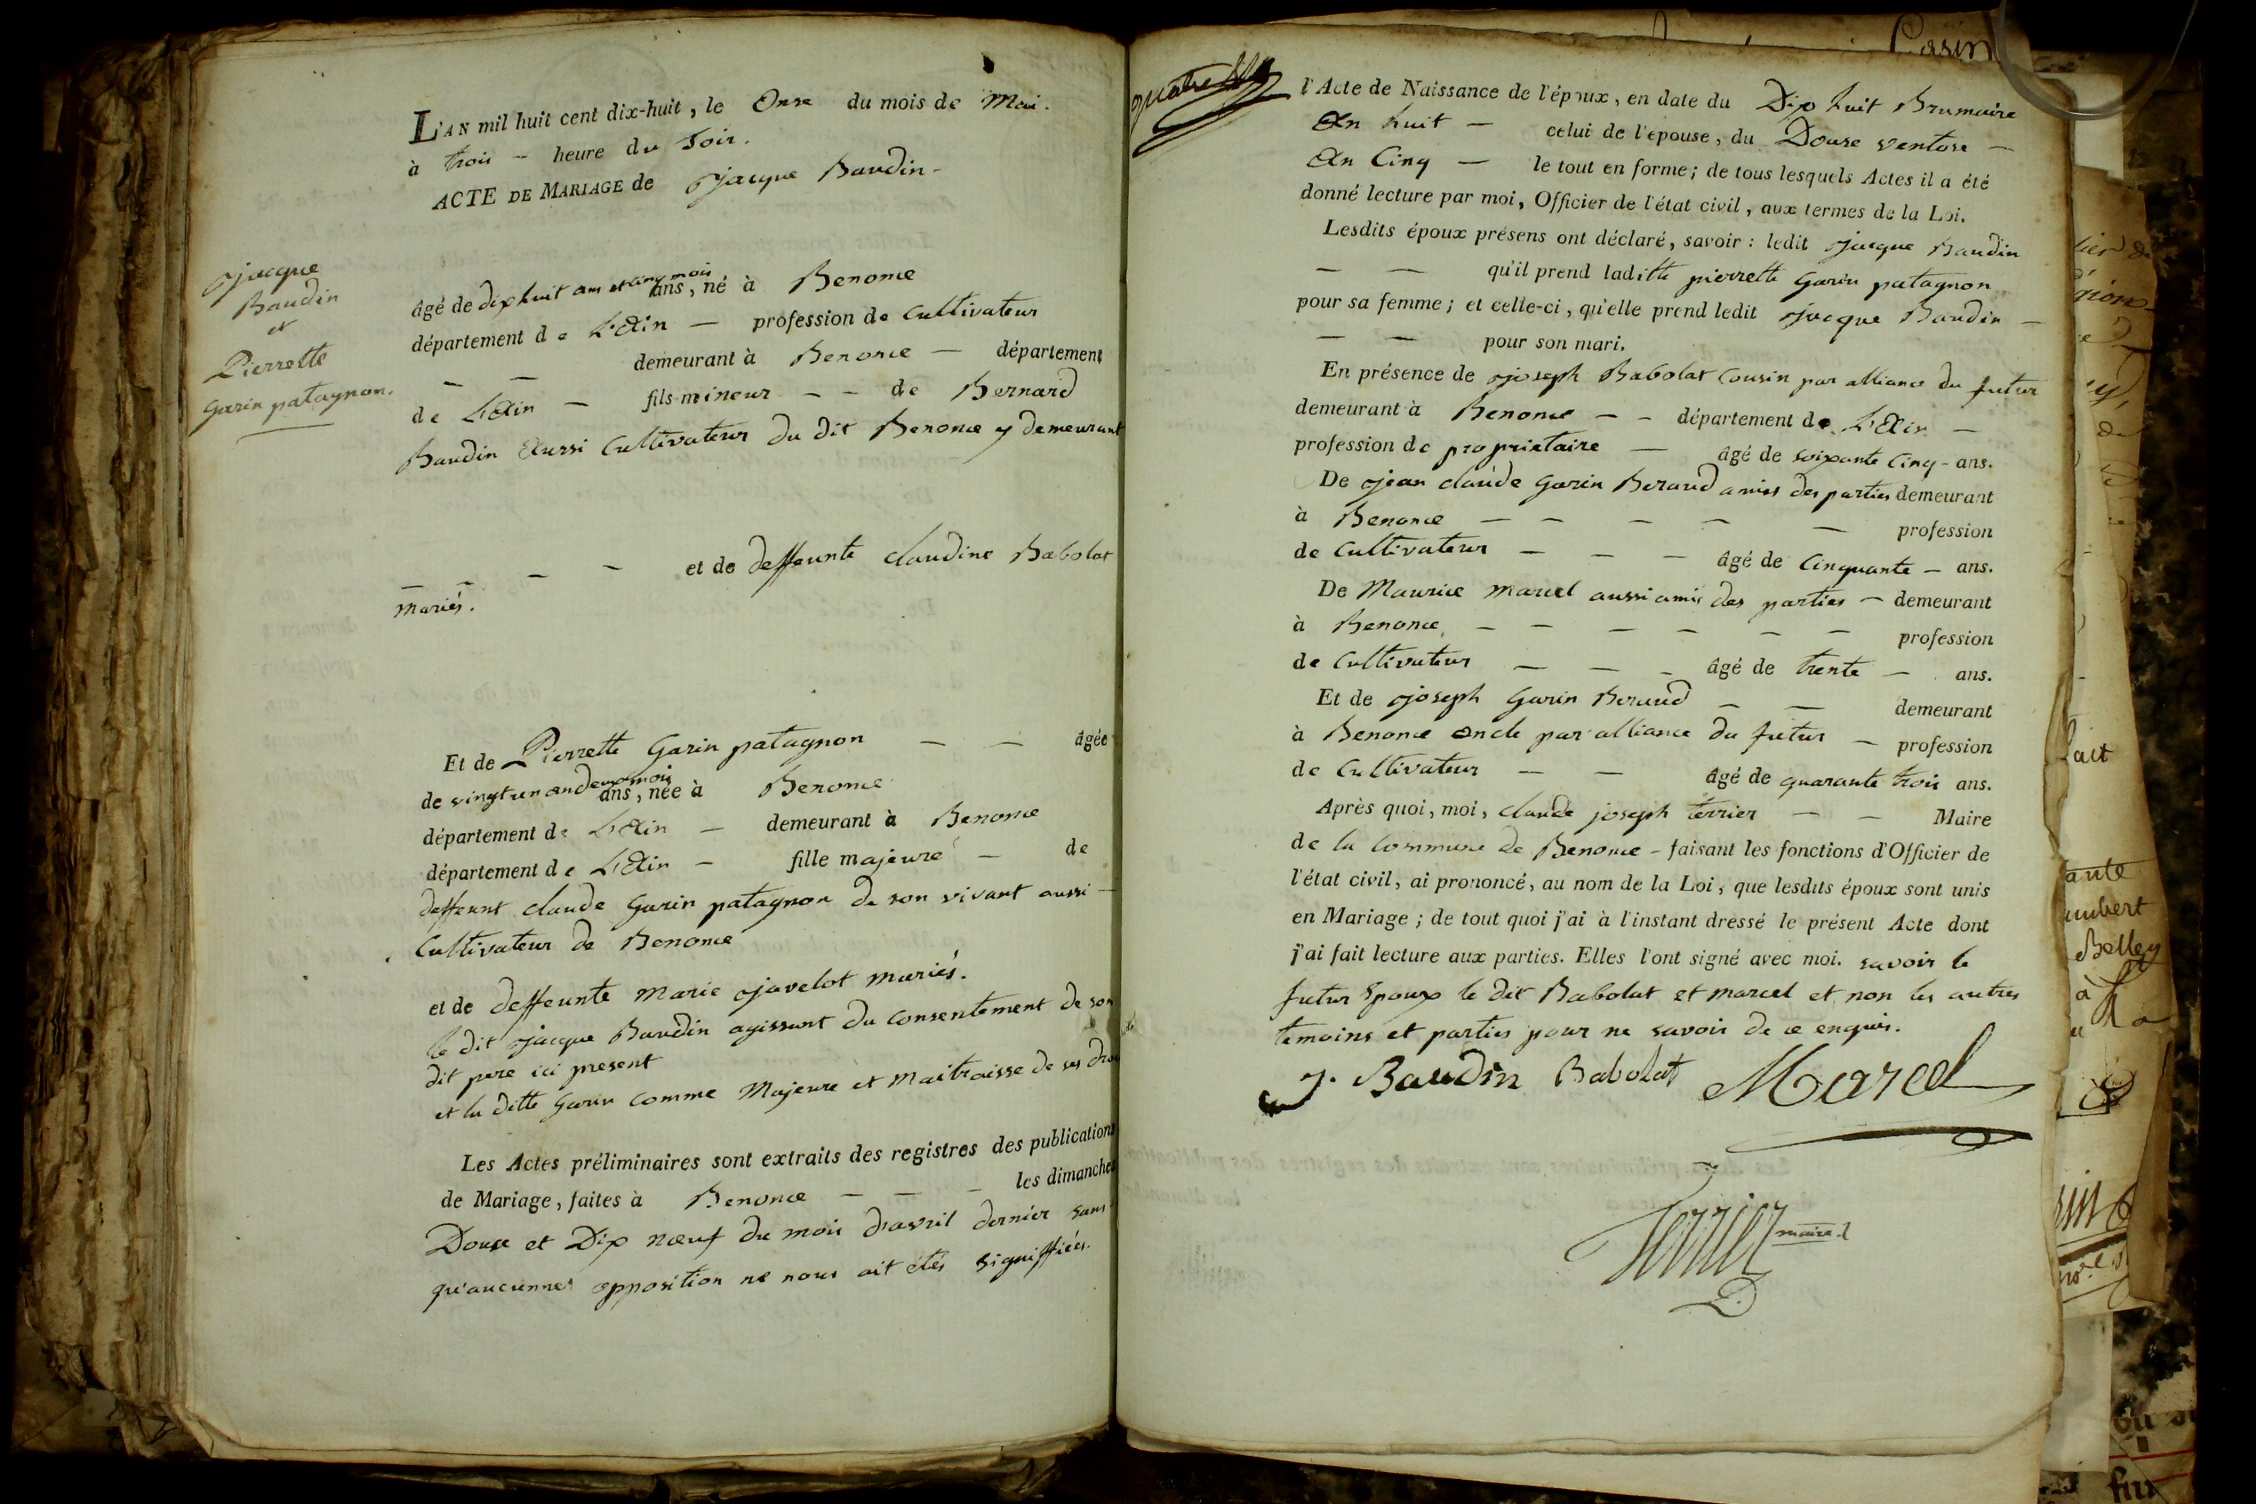 L'AN mil huit cent dix-huit, le Onse du mois de Mai.
à trois - heure du Soir.
ACTE DE MARIAGE de Jacque Baudin -
Jacque
Baudin
et
Pierrette
Garin patagnon.
âgé de dix huit ans et cinq mois ans, né à Benonce
département de L'Ain - profession de Cultivateur
- - demeurant à Benonce - département
de L'Ain - fils mineur - - de Bernard
Baudin Aussi Cultivateur du dit Benonce y demeurant
- - - - et de deffeunte claudine Babolat
mariés.
Et de Pierrette Garin patagnon - - âgée
de vingt un an deux mois ans, née à Benonce
département de L'Ain - demeurant à Benonce
département de L'Ain - fille majeure - de
deffeunt claude Garin patagnon de son vivant aussi -
Cultivateur de Benonce
et de deffeunte Marie Javelot mariés.
le dit Jacque Baudin agissant du consentement de son
dit pere ici present
et la ditte Garin comme Majeure et Maitraisse de ses
Les Actes préliminaires sont extraits des registres des publications
de Mariage, faites à Benonce - - - les dimanches
Douse et Dix nœuf du mois d'avril dernier sans
qu'aucunnes opposition ne nous ait étés signiffiées.
l'Acte de Naissance de l'époux, en date du Dix huit Brumaire
An huit - celui de l'épouse, du Douse ventose -
An Cinq - le tout en forme; de tous lesquels Actes il a été
donné lecture par moi, Officier de l'état civil, aux termes de la Loi.
Lesdits époux présens ont déclaré, savoir: ledit Jacque Baudin
- - qu'il prend laditte pierrette Garin patagnon
pour sa femme; et celle-ci, qu'elle prend ledit Jacque Baudin -
- - pour son mari.
En présence de Joseph Babolat Cousin par alliance du futur
demeurant à Benonce - - département de L'Ain -
profession de proprietaire - âgé de soixante Cinq - ans.
De Jean claude Garin Beraud amis des parties demeurant
à Benonce - - - - - profession
de Cultivateur - - - âgé de Cinquante - ans.
De Maurice Marcel aussi amis des parties - demeurant
à Benonce, - - - - - - profession
de Cultivateur - - - âgé de trente - ans.
Et de Joseph Garin Beraud - - demeurant
à Benonce oncle par alliance du futur - profession
de Cultivateur - - âgé de quarante trois ans.
Après quoi, moi, claude joseph terrier - - Maire
de la Commune de Benonce - faisant les fonctions d'Officier de
l'état civil, ai prononcé, au nom de la Loi, que lesdits époux sont unis
en Mariage; de tout quoi j'ai à l'instant dressé le présent Acte dont
j'ai fait lecture aux parties. Elles l'ont signé avec moi. savoir le
futur Epoux le dit Babolat et marcel et non les autres
temoins et parties pour ne savoir de ce enquis.
J. Baudin Babolat Marcel
Terrier maire
ante
umbert
Belley
à